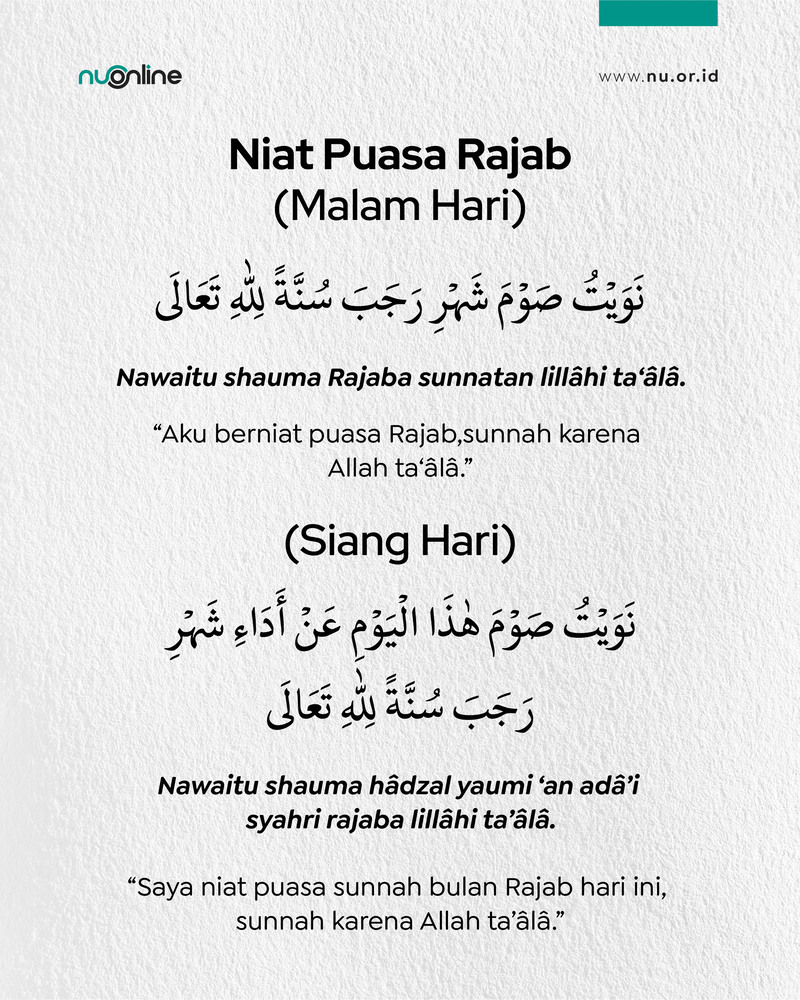 nuonline
www.nu.or.id
Niat Puasa Rajab
(Malam Hari)
نَوَيْتُ صَوْمَ شَهْرِ رَجَبَ سُنَّةً لِلّٰهِ تَعَالَى
Nawaitu shauma Rajaba sunnatan lillâhi ta‘âlâ.
“Aku berniat puasa Rajab,sunnah karena
Allah ta‘âlâ.”
(Siang Hari)
نَوَيْتُ صَوْمَ هٰذَا الْيَوْمِ عَنْ أَدَاءِ شَهْرِ
رَجَبَ سُنَّةً لِلّٰهِ تَعَالَى
Nawaitu shauma hâdzal yaumi ‘an adâ’i
syahri rajaba lillâhi ta’âlâ.
“Saya niat puasa sunnah bulan Rajab hari ini,
sunnah karena Allah ta’âlâ.”